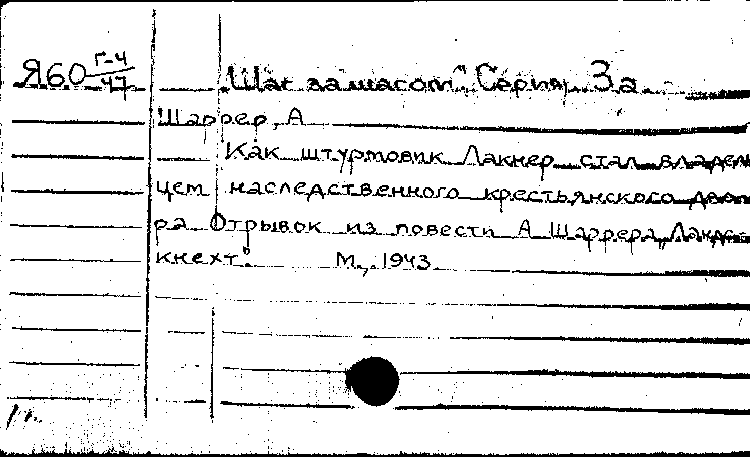 Я60 Г-4/47 „Шаг за шагом", Серия За
Шаррер, А
Как штурмовик Лакнер стал владель
цем наследственного крестьянского дво
ра Отрывок из повести А Шаррера „Ландс-
кнехт". М., 1943